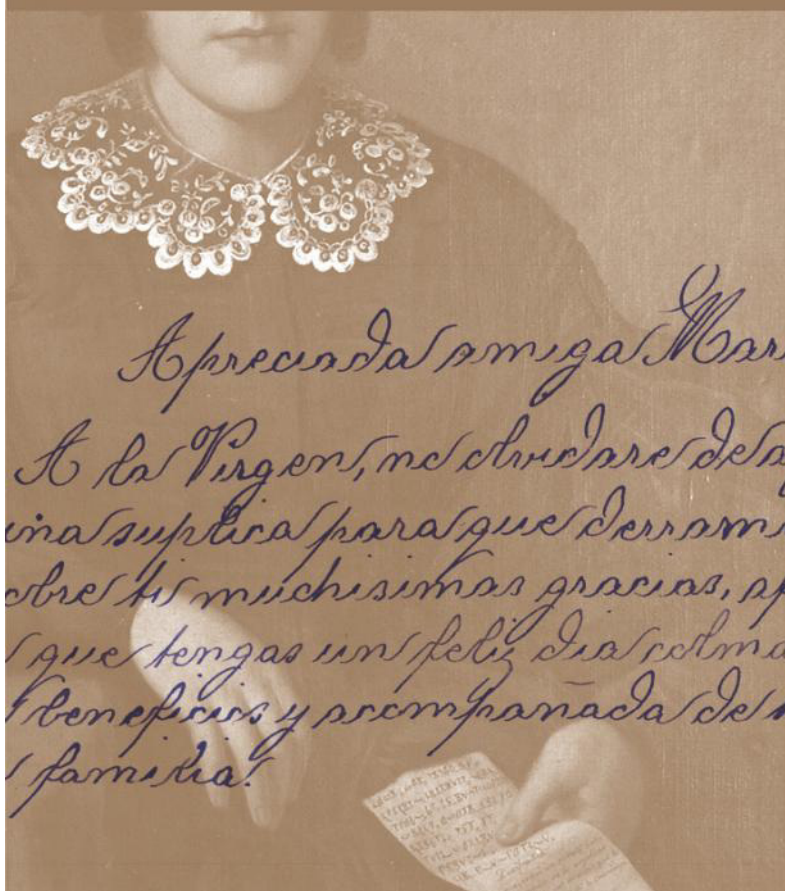 Apreciada amiga Mar
A la Virgen, no olvidare de
una suplica para que derram
obre ti muchisimas gracias, ap
que tengas un feliz dia colma
beneficios y acompañada de
familia.